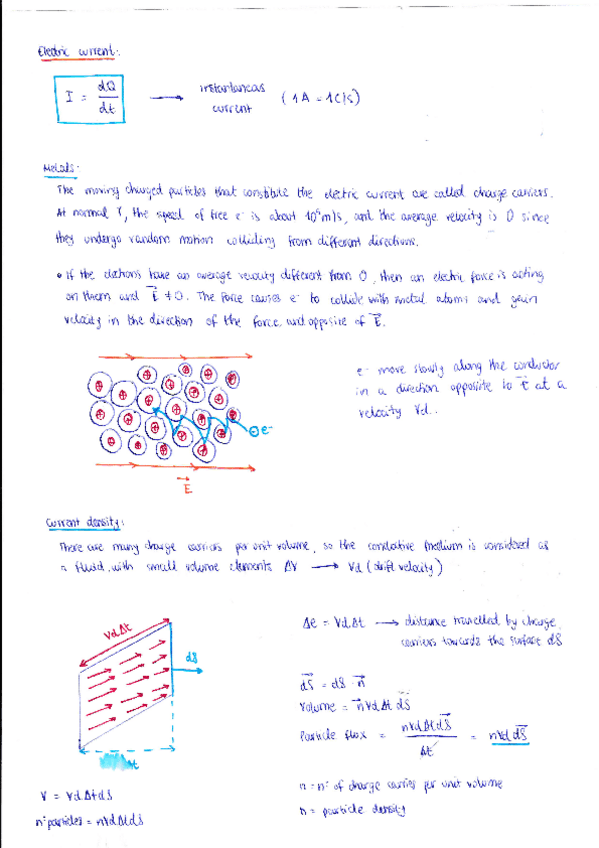 Electric current:
I = dQ/dt → instantaneous current (1A = 1C/s)
Metals:
The moving charged particles that constitute the electric current are called charge carriers.
At normal T, the speed of free e⁻ is about 10⁶m/s, and the average velocity is 0 since
they undergo random motion colliding from different directions.
• If the electrons have an average velocity different from 0, then an electric force is acting
on them and E⃗ ≠ 0. The force causes e⁻ to collide with metal atoms and gain
velocity in the direction of the force and opposite of E⃗.
e⁻ move slowly along the conductor
in a direction opposite to E⃗ at a
velocity Vd.
e⁻
E⃗
Current density:
There are many charge carriers per unit volume, so the conductive medium is considered as
a fluid, with small volume elements ΔV → Vd (drift velocity)
VdΔt
dS
Δt
V = VdΔtdS
nº particles = nVdΔtdS
Δe = Vd.Δt → distance travelled by charge
carriers towards the surface dS
dS⃗ = dS · n⃗
Volume = n⃗VdΔtdS⃗
Particle flux = nVdΔtdS⃗/Δt = nVddS⃗
n = nº of charge carries per unit volume
n = particle density